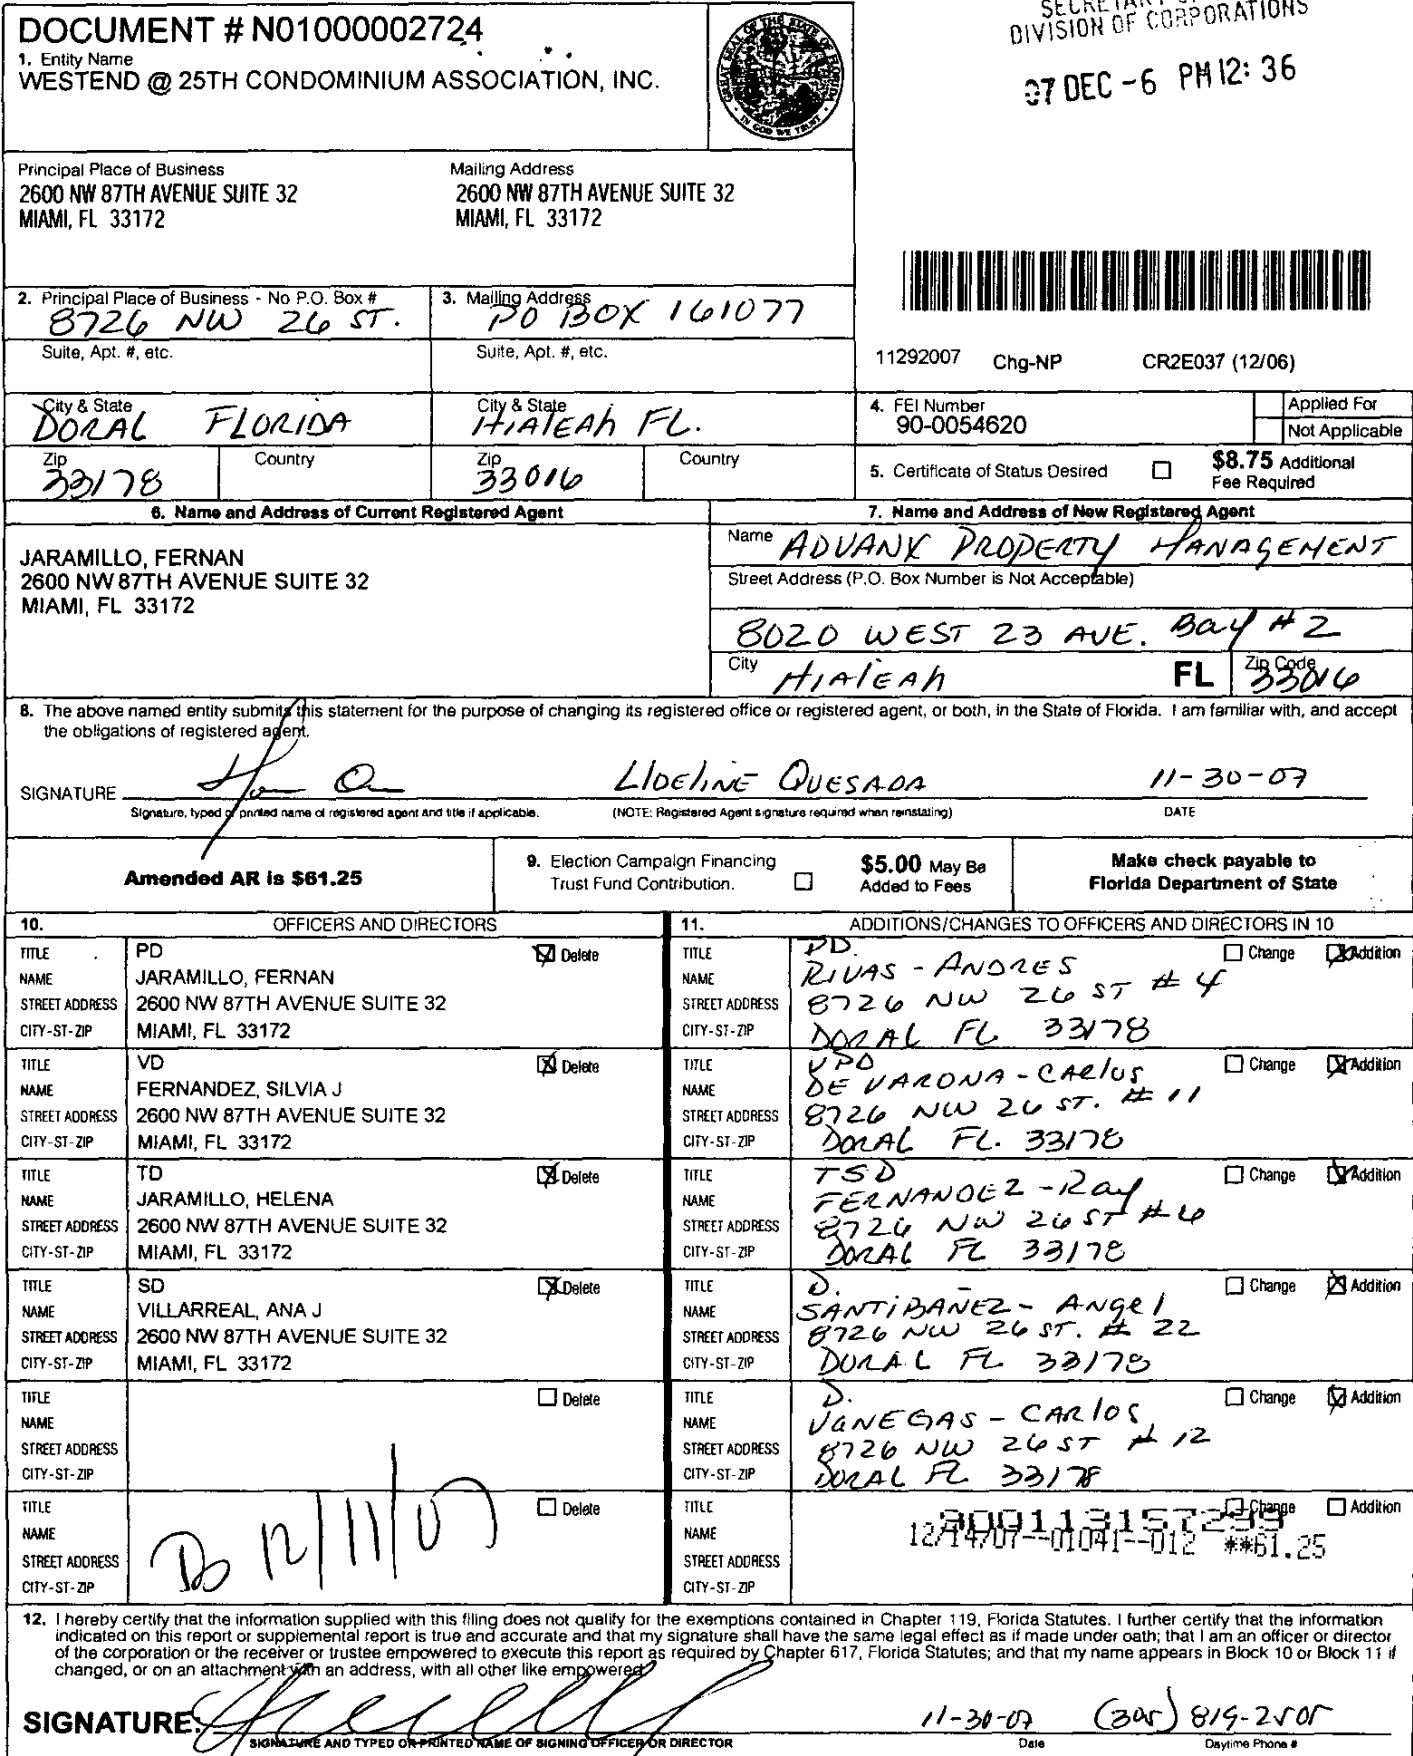 SECRETARY OF
DIVISION OF CORPORATIONS
07 DEC -6 PM 12: 36
DOCUMENT # N01000002724
1. Entity Name
WESTEND @ 25TH CONDOMINIUM ASSOCIATION, INC.
GREAT SEAL OF THE STATE OF FLORIDA
IN GOD WE TRUST
Principal Place of Business
2600 NW 87TH AVENUE SUITE 32
MIAMI, FL 33172
Mailing Address
2600 NW 87TH AVENUE SUITE 32
MIAMI, FL 33172
2. Principal Place of Business - No P.O. Box #
8726 NW 26 ST.
3. Mailing Address
PO BOX 161077
Suite, Apt. #, etc.
Suite, Apt. #, etc.
11292007 Chg-NP CR2E037 (12/06)
City & State
DORAL FLORIDA
City & State
HIALEAH FL.
4. FEI Number
90-0054620
Applied For
Not Applicable
Zip
33178
Country
Zip
33016
Country
5. Certificate of Status Desired
$8.75 Additional
Fee Required
6. Name and Address of Current Registered Agent
JARAMILLO, FERNAN
2600 NW 87TH AVENUE SUITE 32
MIAMI, FL 33172
7. Name and Address of New Registered Agent
Name ADVANX PROPERTY MANAGEMENT
Street Address (P.O. Box Number is Not Acceptable)
8020 WEST 23 AVE. Bay # 2
City HIALEAH FL Zip Code 33016
8. The above named entity submits this statement for the purpose of changing its registered office or registered agent, or both, in the State of Florida. I am familiar with, and accept
the obligations of registered agent.
SIGNATURE LIDELINE QUESADA 11-30-07
Signature, typed or printed name of registered agent and title if applicable. (NOTE: Registered Agent signature required when reinstating) DATE
Amended AR is $61.25
9. Election Campaign Financing
Trust Fund Contribution.
$5.00 May Be
Added to Fees
Make check payable to
Florida Department of State
10. OFFICERS AND DIRECTORS
TITLE PD Delete
NAME JARAMILLO, FERNAN
STREET ADDRESS 2600 NW 87TH AVENUE SUITE 32
CITY-ST-ZIP MIAMI, FL 33172
TITLE VD Delete
NAME FERNANDEZ, SILVIA J
STREET ADDRESS 2600 NW 87TH AVENUE SUITE 32
CITY-ST-ZIP MIAMI, FL 33172
TITLE TD Delete
NAME JARAMILLO, HELENA
STREET ADDRESS 2600 NW 87TH AVENUE SUITE 32
CITY-ST-ZIP MIAMI, FL 33172
TITLE SD Delete
NAME VILLARREAL, ANA J
STREET ADDRESS 2600 NW 87TH AVENUE SUITE 32
CITY-ST-ZIP MIAMI, FL 33172
TITLE Delete
NAME
STREET ADDRESS
CITY-ST-ZIP
TITLE Delete
NAME
STREET ADDRESS
CITY-ST-ZIP
12/11/07
11. ADDITIONS/CHANGES TO OFFICERS AND DIRECTORS IN 10
TITLE PD. Change Addition
NAME RIVAS - ANDRES
STREET ADDRESS 8726 NW 26 ST # 4
CITY-ST-ZIP DORAL FL 33178
TITLE VPD Change Addition
NAME DE VARONA - CARLOS
STREET ADDRESS 8726 NW 26 ST. # 11
CITY-ST-ZIP DORAL FL. 33178
TITLE TSD Change Addition
NAME FERNANDEZ - Ray
STREET ADDRESS 8726 NW 26 ST # 6
CITY-ST-ZIP DORAL FL 33178
TITLE D. Change Addition
NAME SANTIBANEZ - Angel
STREET ADDRESS 8726 NW 26 ST. # 22
CITY-ST-ZIP DORAL FL 33178
TITLE D. Change Addition
NAME VANEGAS - CARLOS
STREET ADDRESS 8726 NW 26 ST # 12
CITY-ST-ZIP DORAL FL 33178
TITLE Change Addition
300113157299
NAME 12/14/07--01041--012 **61.25
STREET ADDRESS
CITY-ST-ZIP
12. I hereby certify that the information supplied with this filing does not qualify for the exemptions contained in Chapter 119, Florida Statutes. I further certify that the information
indicated on this report or supplemental report is true and accurate and that my signature shall have the same legal effect as if made under oath; that I am an officer or director
of the corporation or the receiver or trustee empowered to execute this report as required by Chapter 617, Florida Statutes; and that my name appears in Block 10 or Block 11 if
changed, or on an attachment with an address, with all other like empowered.
SIGNATURE: 11-30-07 (305) 819-2505
SIGNATURE AND TYPED OR PRINTED NAME OF SIGNING OFFICER OR DIRECTOR Date Daytime Phone #